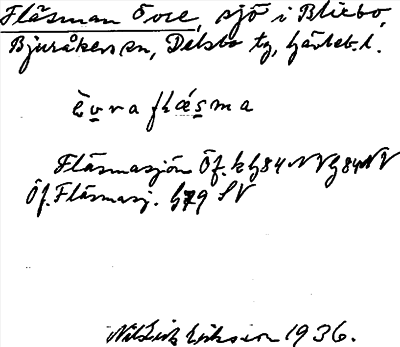 Fläsman Övre, sjö i Blisbo,
Bjuråkers sn, Delsbo tg, Gävleb. l.
èvra flæsma
Fläsmasjön Öf. kg 84 NV g 84 NV
Öf. Fläsmasj. G 79 SV
Nils Erik Eriksson 1936.